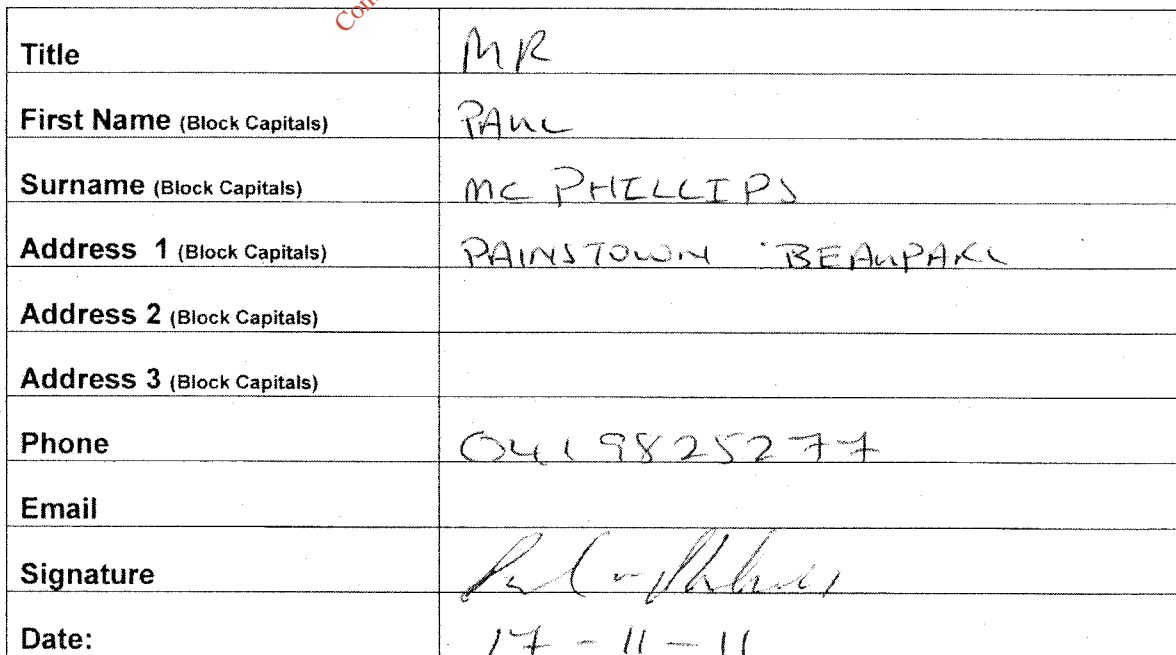 Title MR
First Name (Block Capitals) PAUL
Surname (Block Capitals) MC PHILLIPS
Address 1 (Block Capitals) PAINSTOWN BEAUPARC
Address 2 (Block Capitals)
Address 3 (Block Capitals)
Phone 0419825277
Email
Signature
Date: 17-11-11